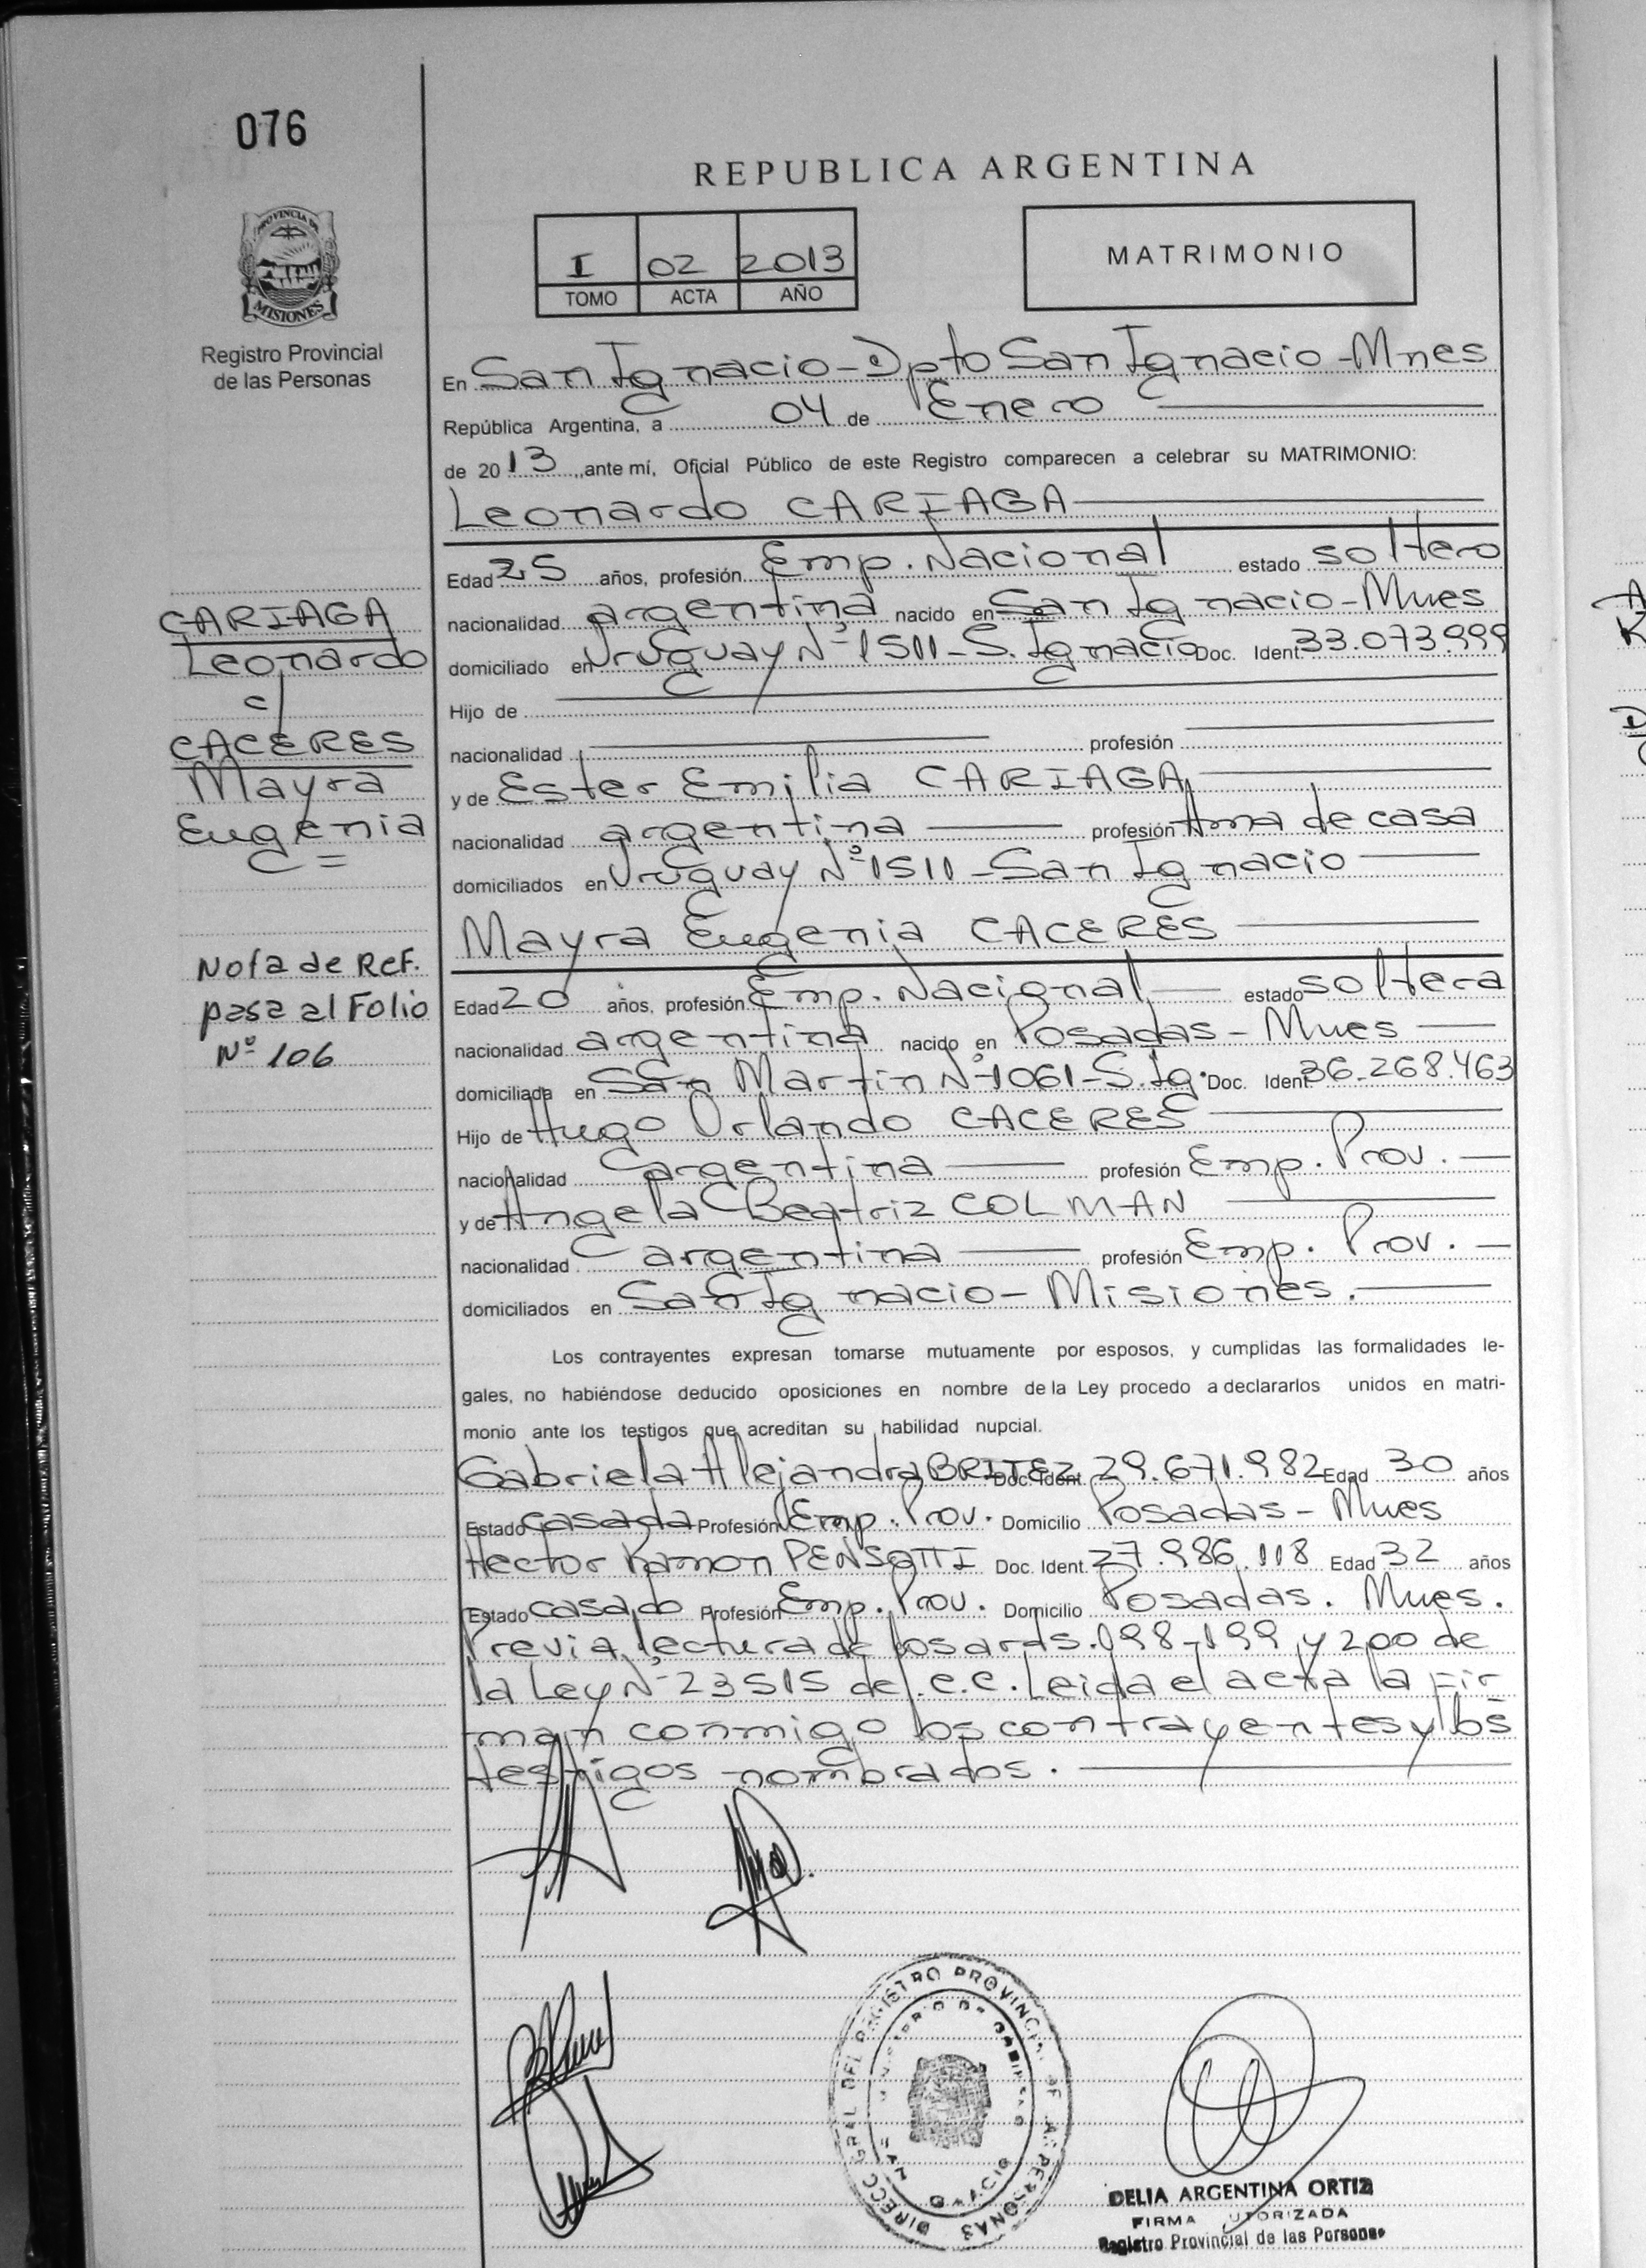 076
PROVINCIA DE
MISIONES
Registro Provincial
de las Personas
REPUBLICA ARGENTINA
I 02 2013
TOMO ACTA AÑO
MATRIMONIO
En San Ignacio - Dpto San Ignacio - Mnes
República Argentina, a 04 de Enero
de 2013, ante mí, Oficial Público de este Registro comparecen a celebrar su MATRIMONIO:
Leonardo CARIAGA
Edad 25 años, profesión Emp. Nacional estado soltero
nacionalidad argentina nacido en San Ignacio - Mnes
domiciliado en Uruguay Nº 1511 - S. Ignacio Doc. Ident. 33.073.999
Hijo de
nacionalidad profesión
y de Ester Emilia CARIAGA
nacionalidad argentina profesión Ama de casa
domiciliados en Uruguay Nº 1511 - San Ignacio
Mayra Eugenia CACERES
Edad 20 años, profesión Emp. Nacional estado soltera
nacionalidad argentina nacido en Posadas - Mnes
domiciliada en San Martin Nº 1061 - S. Ig. Doc. Ident. 36.268.463
Hijo de Hugo Orlando CACERES
nacionalidad argentina profesión Emp. Prov.
y de Angela Beatriz COLMAN
nacionalidad argentina profesión Emp. Prov.
domiciliados en San Ignacio - Misiones.
CARIAGA
Leonardo
c/
CACERES
Mayra
Eugenia
Nota de Ref.
pasa al Folio
Nº 106
Los contrayentes expresan tomarse mutuamente por esposos, y cumplidas las formalidades le-
gales, no habiéndose deducido oposiciones en nombre de la Ley procedo a declararlos unidos en matri-
monio ante los testigos que acreditan su habilidad nupcial.
Gabriela Alejandra BRITEZ Doc. Ident. 29.671.982 Edad 30 años
Estado casada Profesión Emp. Prov. Domicilio Posadas - Mnes
Hector Ramon PENSOTTI Doc. Ident. 27.986.118 Edad 32 años
Estado casado Profesión Emp. Prov. Domicilio Posadas. Mnes.
Previa lectura de los arts. 198-199 y 200 de
la Ley Nº 23515 del C.C. Leida el acta la fir-
man conmigo los contrayentes y los
testigos nombrados.
DIRECC GRAL DEL REGISTRO PROVINCIAL DE LAS PERSONAS
MINISTERIO DE GOBIERNO
SAN IGNACIO
DELIA ARGENTINA ORTIZ
FIRMA AUTORIZADA
Registro Provincial de las Personas